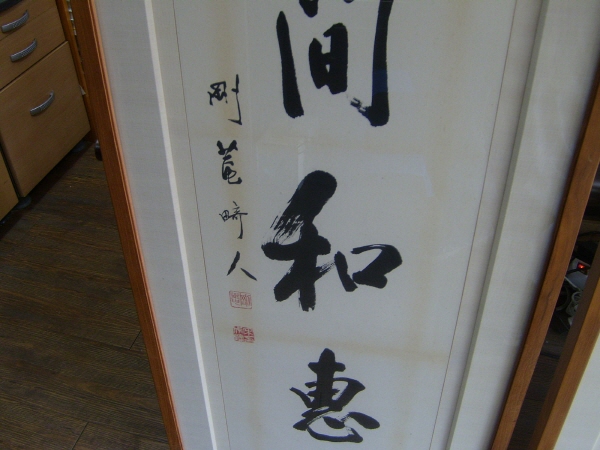 間和惠
剛菴畸人